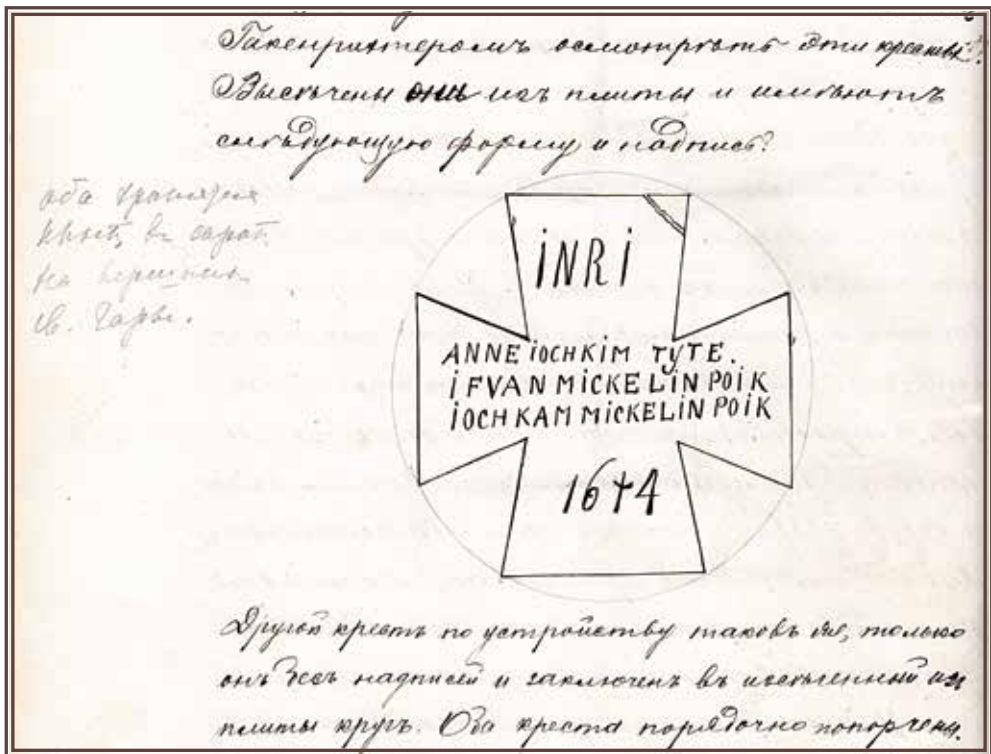 Гакенрихтеромъ осмотрѣть эти кресты?
Высѣчены онѣ изъ плиты и имѣютъ
слѣдующую форму и надпись?
оба хранятся
на вершинѣ
св. Горы.
iNRi
ANNE iOCHKiM TYTE.
iFVAN MiCKELiN POiK
iOCHKAM MiCKELiN POiK
1644
Другой крестъ по устройству таковъ же, только
онъ безъ надписей и заключенъ въ изсѣченный изъ
плиты кругъ. Оба креста порядочно попорчены.